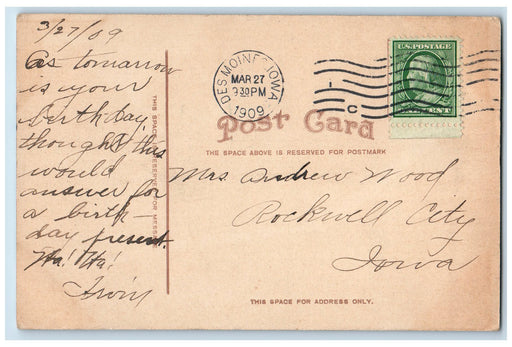 3/27/09
As tomorrow
is your
birthday,
thought this
would
answer for
a birth-
day present.
Ha! Ha!
Irvin
DES MOINES, IOWA
MAR 27
930PM
1909
1
C
U.S. POSTAGE
Post Card
THE SPACE ABOVE IS RESERVED FOR POSTMARK
Mrs Andrew Wood
Rockwell City
Iowa
THIS SPACE FOR ADDRESS ONLY.
THIS SPACE FOR MESSAGE